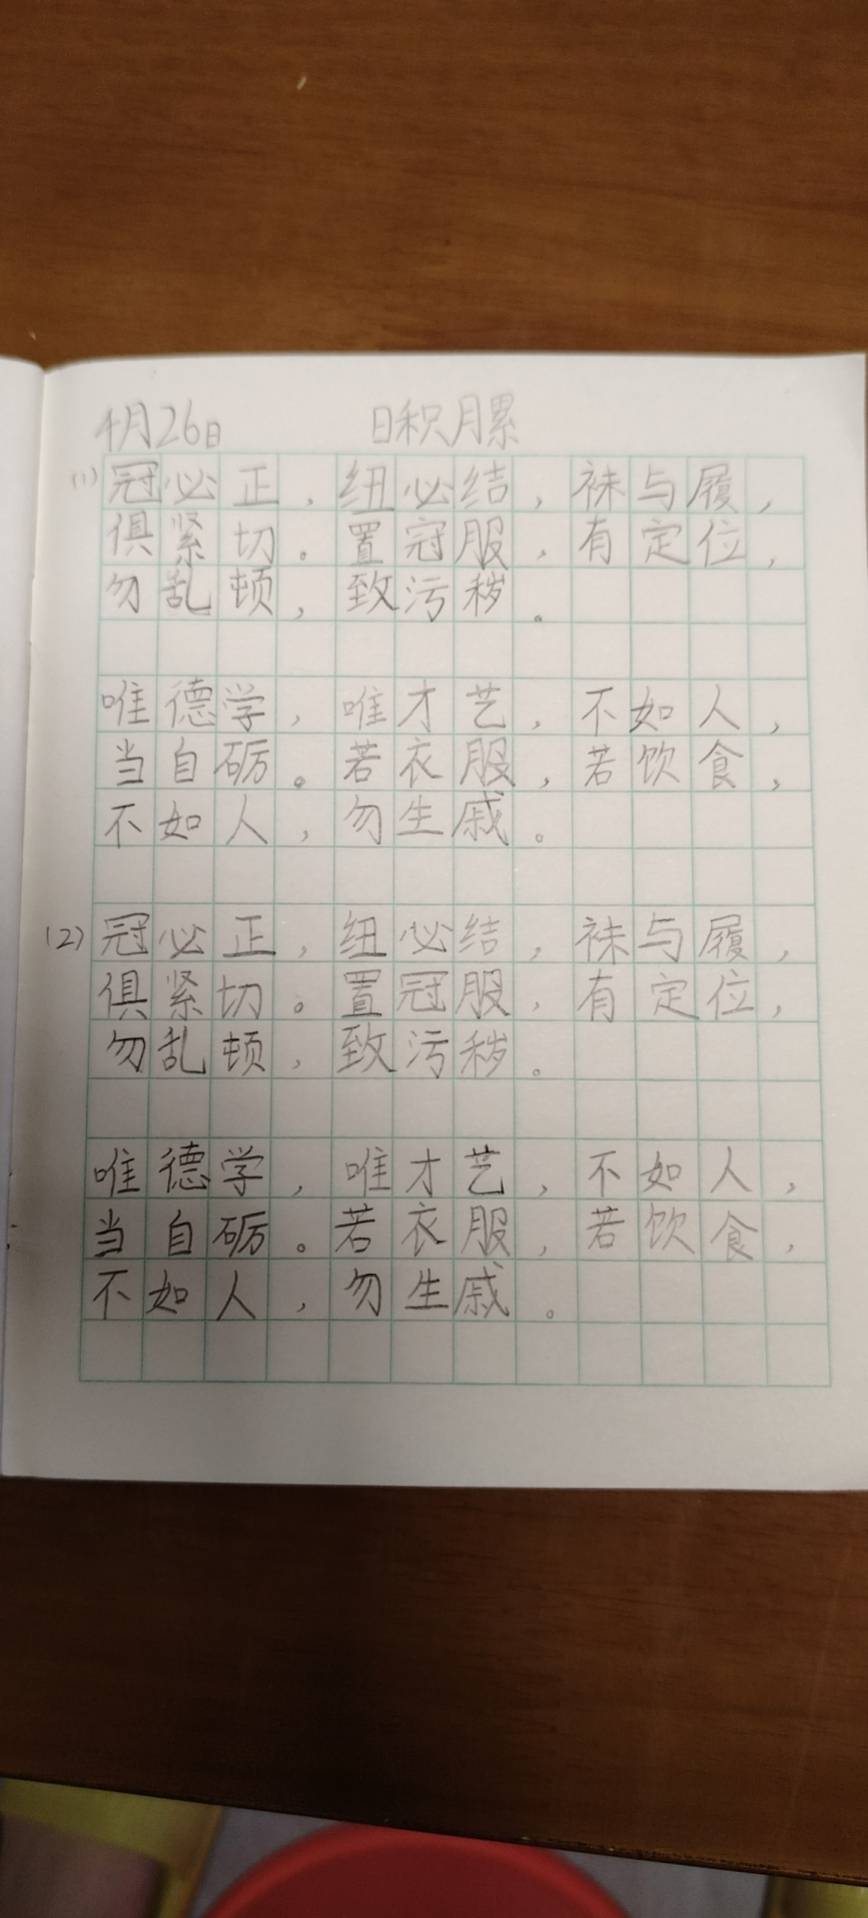 4月26日 日积月累
(1)冠必正，纽必结，袜与履，
俱紧切。置冠服，有定位，
勿乱顿，致污秽。
唯德学，唯才艺，不如人，
当自砺。若衣服，若饮食，
不如人，勿生戚。
(2)冠必正，纽必结，袜与履，
俱紧切。置冠服，有定位，
勿乱顿，致污秽。
唯德学，唯才艺，不如人，
当自砺。若衣服，若饮食，
不如人，勿生戚。